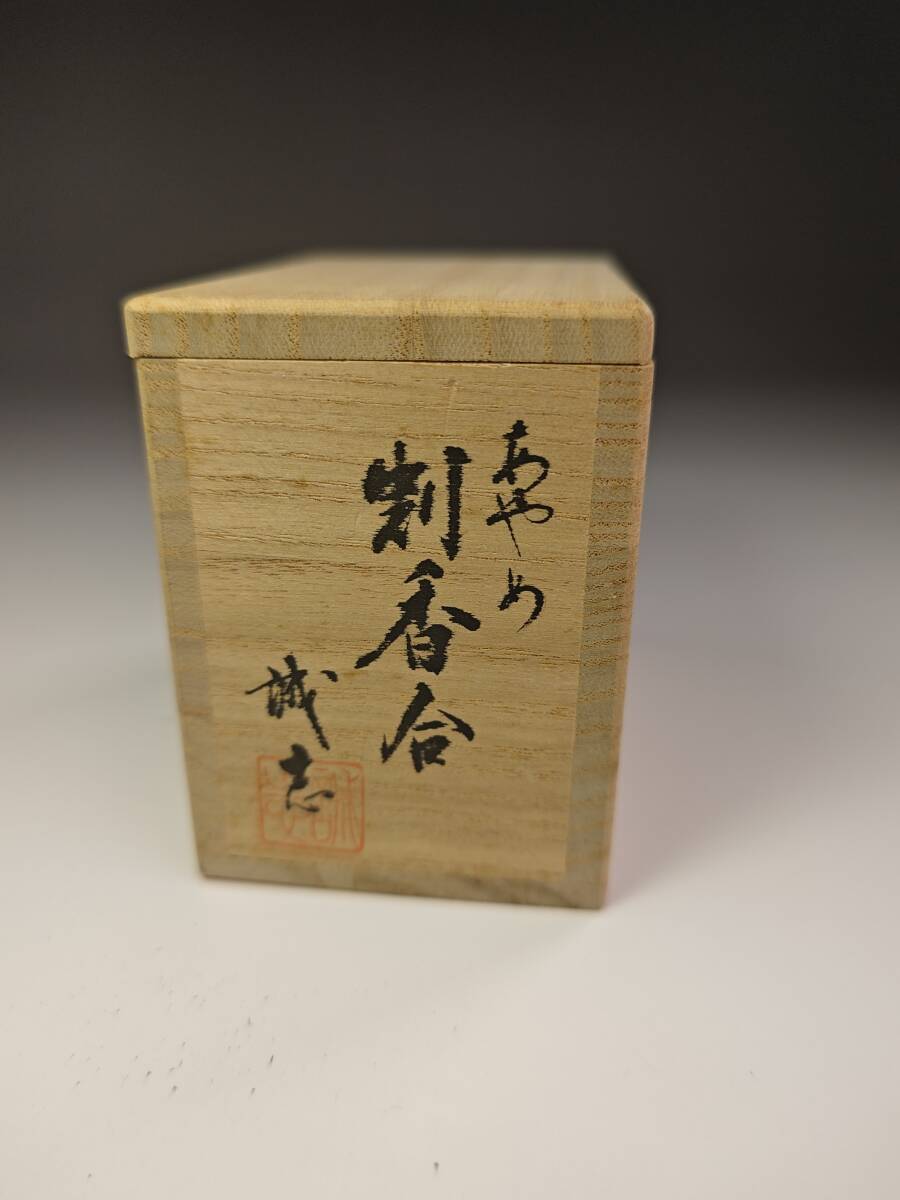 あやめ
割香合
誠志